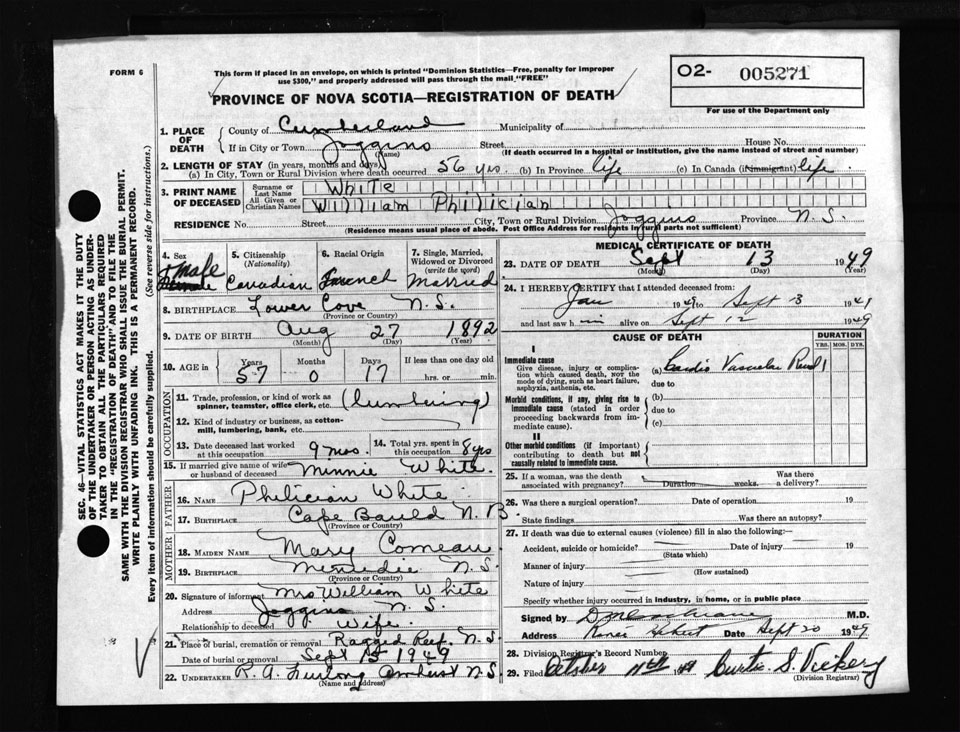 FORM 6
This form if placed in an envelope, on which is printed "Dominion Statistics—Free, penalty for improper
use $300," and properly addressed will pass through the mail "FREE"
O2- 005271
For use of the Department only
PROVINCE OF NOVA SCOTIA—REGISTRATION OF DEATH
1. PLACE OF DEATH County of Cumberland Municipality of
If in City or Town Joggins Street House No.
(Name) (If death occurred in a hospital or institution, give the name instead of street and number)
2. LENGTH OF STAY (in years, months and days)
(a) In City, Town or Rural Division where death occurred 56 yrs. (b) In Province life (c) In Canada (if immigrant) life
3. PRINT NAME OF DECEASED Surname or Last Name White
All Given or Christian Names William Philician
RESIDENCE No. Street City, Town or Rural Division Joggins Province N.S.
(Residence means usual place of abode. Post Office Address for residents in rural parts not sufficient)
4. Sex male
5. Citizenship (Nationality) Canadian
6. Racial Origin French
7. Single, Married, Widowed or Divorced (write the word) Married
8. BIRTHPLACE Lower Cove N.S.
(Province or Country)
9. DATE OF BIRTH Aug 27 1892
(Month) (Day) (Year)
10. AGE in Years 57 Months 0 Days 17 If less than one day old
hrs. or min.
OCCUPATION
11. Trade, profession, or kind of work as
spinner, teamster, office clerk, etc. (lumbering)
12. Kind of industry or business, as cotton-
mill, lumbering, bank, etc.
13. Date deceased last worked at this occupation 9 mos. 14. Total yrs. spent in this occupation 8 yrs
15. If married give name of wife
or husband of deceased Minnie White.
FATHER
16. NAME Philician White
17. BIRTHPLACE Cape Bauld N.B.
(Province or Country)
MOTHER
18. MAIDEN NAME Mary Comeau
19. BIRTHPLACE Minudie N.S.
(Province or Country)
20. Signature of informant Mrs William White
Address Joggins N.S.
Relationship to deceased Wife.
21. Place of burial, cremation or removal Ragged Reef, N.S.
Date of burial or removal Sept 15 1949
22. UNDERTAKER R. A. Furlong Amherst N.S.
(Name and address)
MEDICAL CERTIFICATE OF DEATH
23. DATE OF DEATH Sept 13 1949
(Month) (Day) (Year)
24. I HEREBY CERTIFY that I attended deceased from:
Jan 1949 to Sept 13 1949
and last saw him alive on Sept 12 1949
CAUSE OF DEATH DURATION
YRS. MOS. DYS.
I
Immediate cause (a) Cardio Vascular
Give disease, injury or complica-
tion which caused death, NOT the
mode of dying, such as heart failure,
asphyxia, asthenia, etc.
due to
Morbid conditions, if any, giving rise to
immediate cause (stated in order
proceeding backwards from im-
mediate cause).
(b)
due to
(c)
II
Other morbid conditions (if important)
contributing to death but not
causally related to immediate cause.
25. If a woman, was the death
associated with pregnancy? Duration weeks. Was there
a delivery?
26. Was there a surgical operation? Date of operation 19
State findings Was there an autopsy?
27. If death was due to external causes (violence) fill in also the following:—
Accident, suicide or homicide? Date of injury 19
(State which)
Manner of injury
(How sustained)
Nature of injury
Specify whether injury occurred in industry, in home, or in public place
Signed by M.D.
Address Date Sept 20 1949
28. Division Registrar's Record Number
29. Filed October Curtis S. Vickery
(Division Registrar)
SEC. 46—VITAL STATISTICS ACT MAKES IT THE DUTY
OF THE UNDERTAKER OR PERSON ACTING AS UNDER-
TAKER TO OBTAIN ALL THE PARTICULARS REQUIRED
IN THE "REGISTRATION OF DEATH" AND TO FILE THE
SAME WITH THE DIVISION REGISTRAR WHO SHALL ISSUE THE BURIAL PERMIT.
WRITE PLAINLY WITH UNFADING INK. THIS IS A PERMANENT RECORD.
Every item of information should be carefully supplied. (See reverse side for instructions.)